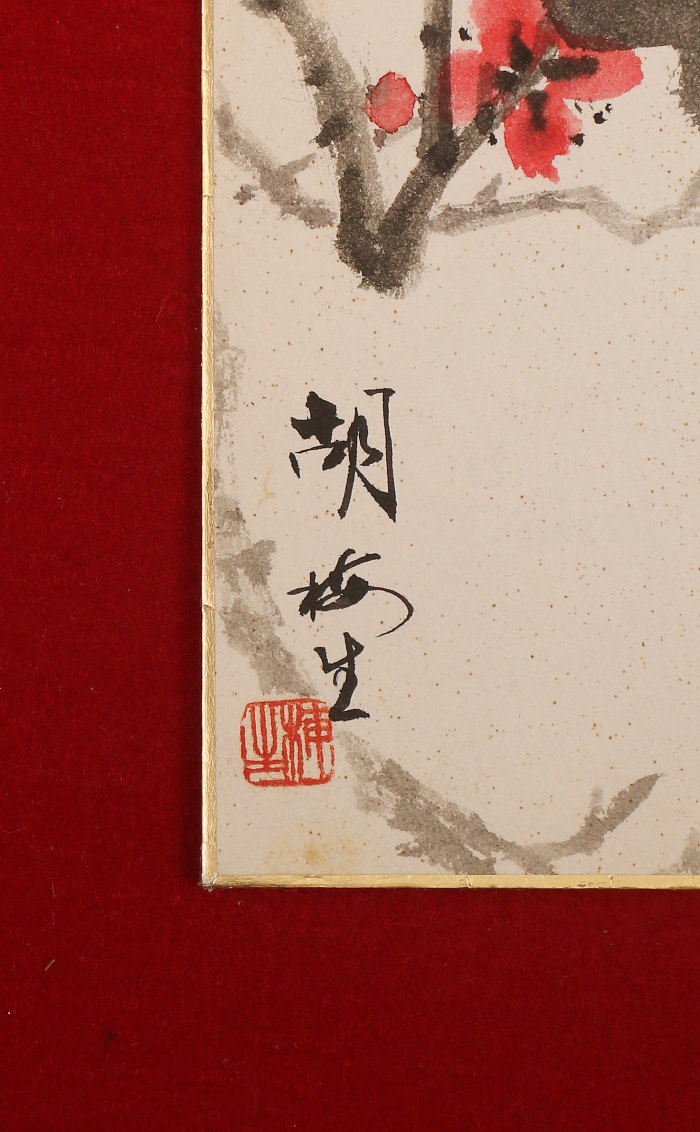 胡梅生
梅生